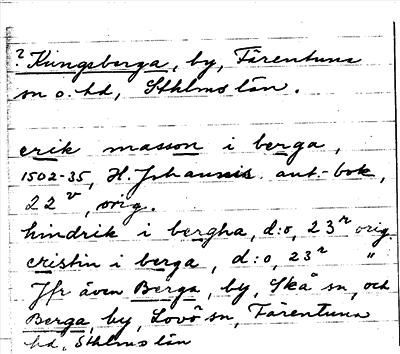 ? Kungsberga, by, Färentuna
sn o. hd, Sthlms län.
erik masson i berga,
1502-35, H. Johannis ant.-bok,
22 v, orig.
hindrik i bergha, d:o, 23 r orig.
cristin i berga, d:o, 23 r "
Jfr även Berga, by, Skå sn, och
Berga, by, Lovö sn, Färentuna
hd, Sthlms län